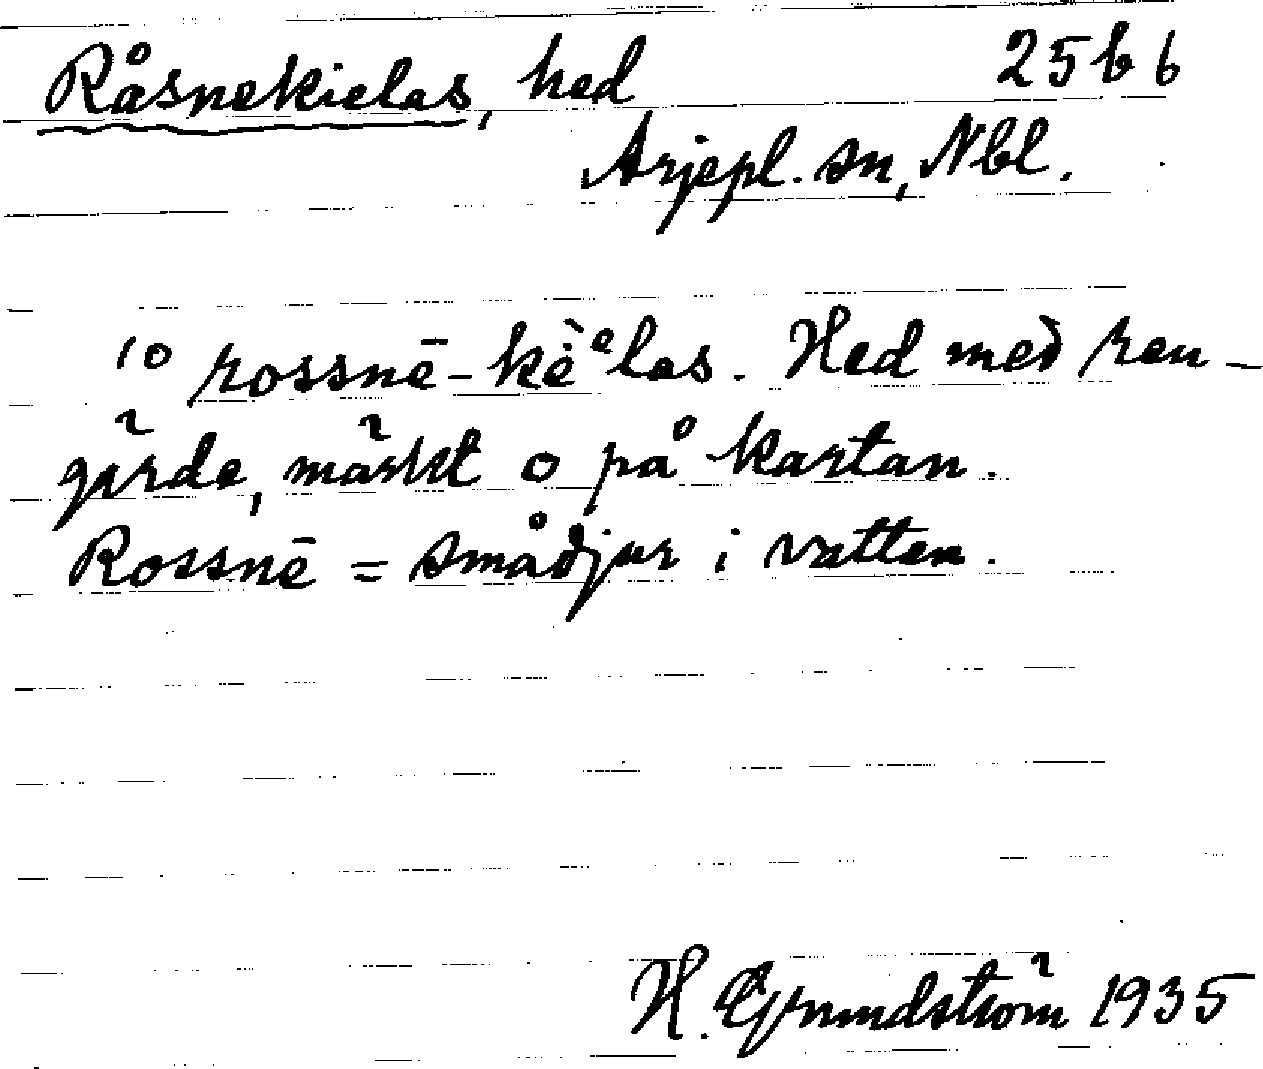 Råsnekielas, hed 25 b 6
Arjepl. sn, Nbl.
10 rossnē-kè̀ᵉlas. Hed med ren-
gärde, märkt o på kartan.
Rossnē = smådjur i vatten.
H. Grundström 1935